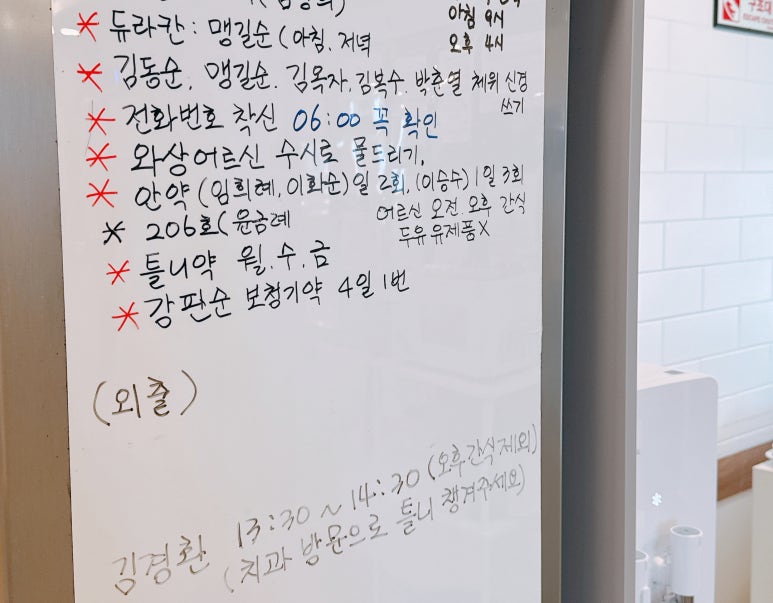 아침 9시
* 듀라칸: 맹길순 (아침, 저녁
오후 4시
* 김동순, 맹길순, 김옥자, 김복수, 박춘열 체위 신경
쓰기
* 전화번호 착신 06:00 꼭 확인
* 와상어르신 수시로 물드리기.
* 안약 (임희례, 이화순) 일 2회, (이승수) 1일 3회
* 206호 (윤금례 어르신 오전. 오후 간식
두유 유제품X
* 틀니약 월.수.금
* 강판순 보청기약 4일 1번
(외출)
김경환 13:30 ~ 14:30 (오후간식제외)
(치과 방문으로 틀니 챙겨주세요)